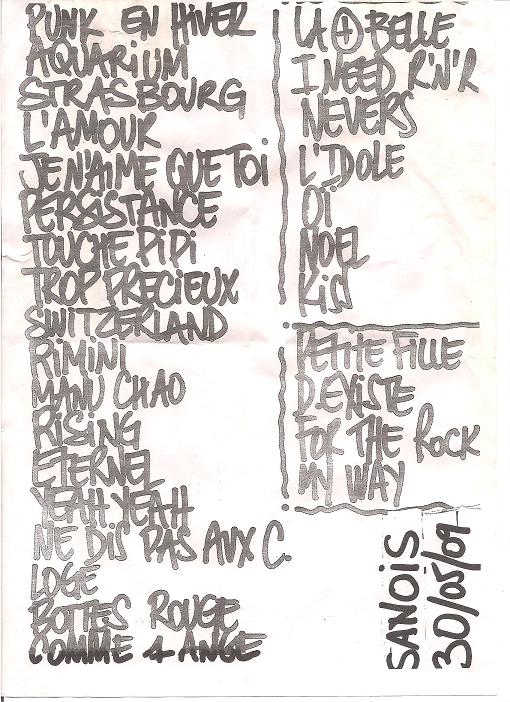 PUNK EN HIVER
AQUARIUM
STRASBOURG
L'AMOUR
JE N'AIME QUE TOI
PERSISTANCE
TOUCHE PiPi
TROP PRECIEUX
SWITZERLAND
RIMINI
MANU CHAO
RISING
ETERNEL
YEAH YEAH
NE DIS PAS AUX C.
LOGE
BOTTES ROUGE
COMME 1 ANGE
LA + BELLE
I NEED R'N'R
NEVERS
L'IDOLE
OÏ
NOEL
KiSS
PETITE FILLE
D.EXISTE
FOR THE ROCK
MY WAY
SANOIS
30/05/09